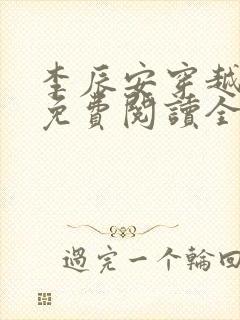 李辰安穿越
免費閱讀全
過完一个輪回